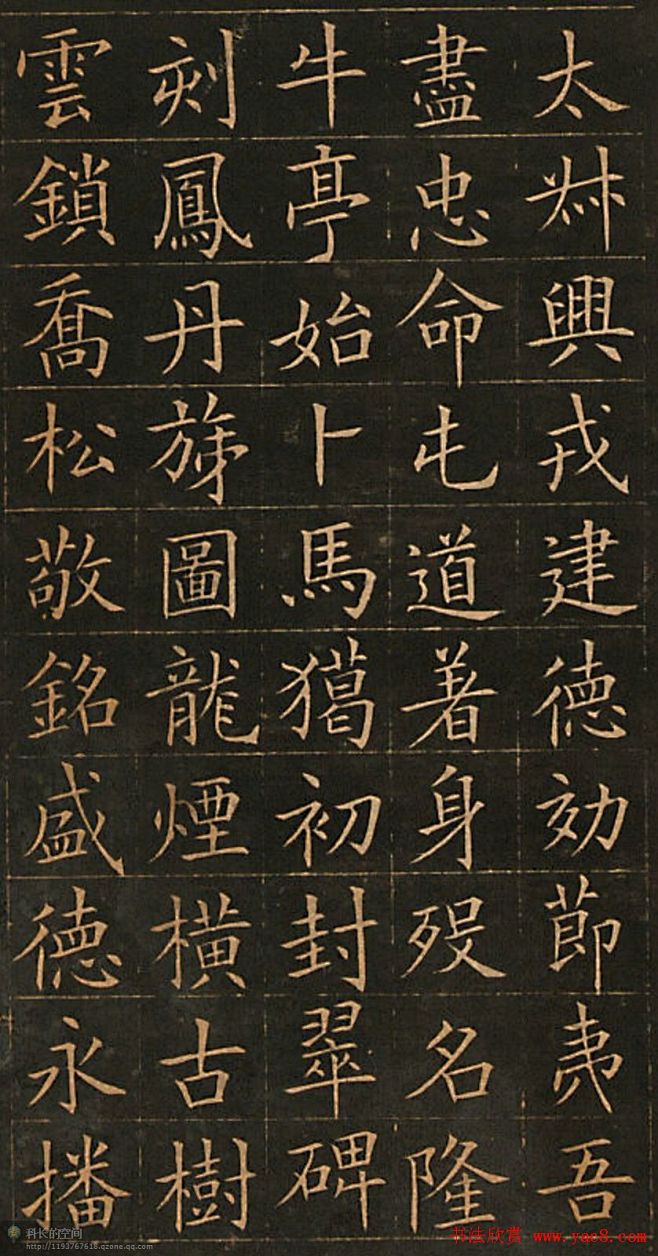 太叔興戎建德効節夷吾
盡忠命屯道著身歿名隆
牛亭始卜馬獦初封翠碑
刻鳳丹旐圖龍煙橫古樹
雲鎖喬松敬銘盛德永播
科长的空间
http://1193767618.qzone.qq.com
书法欣赏 www.yac8.com